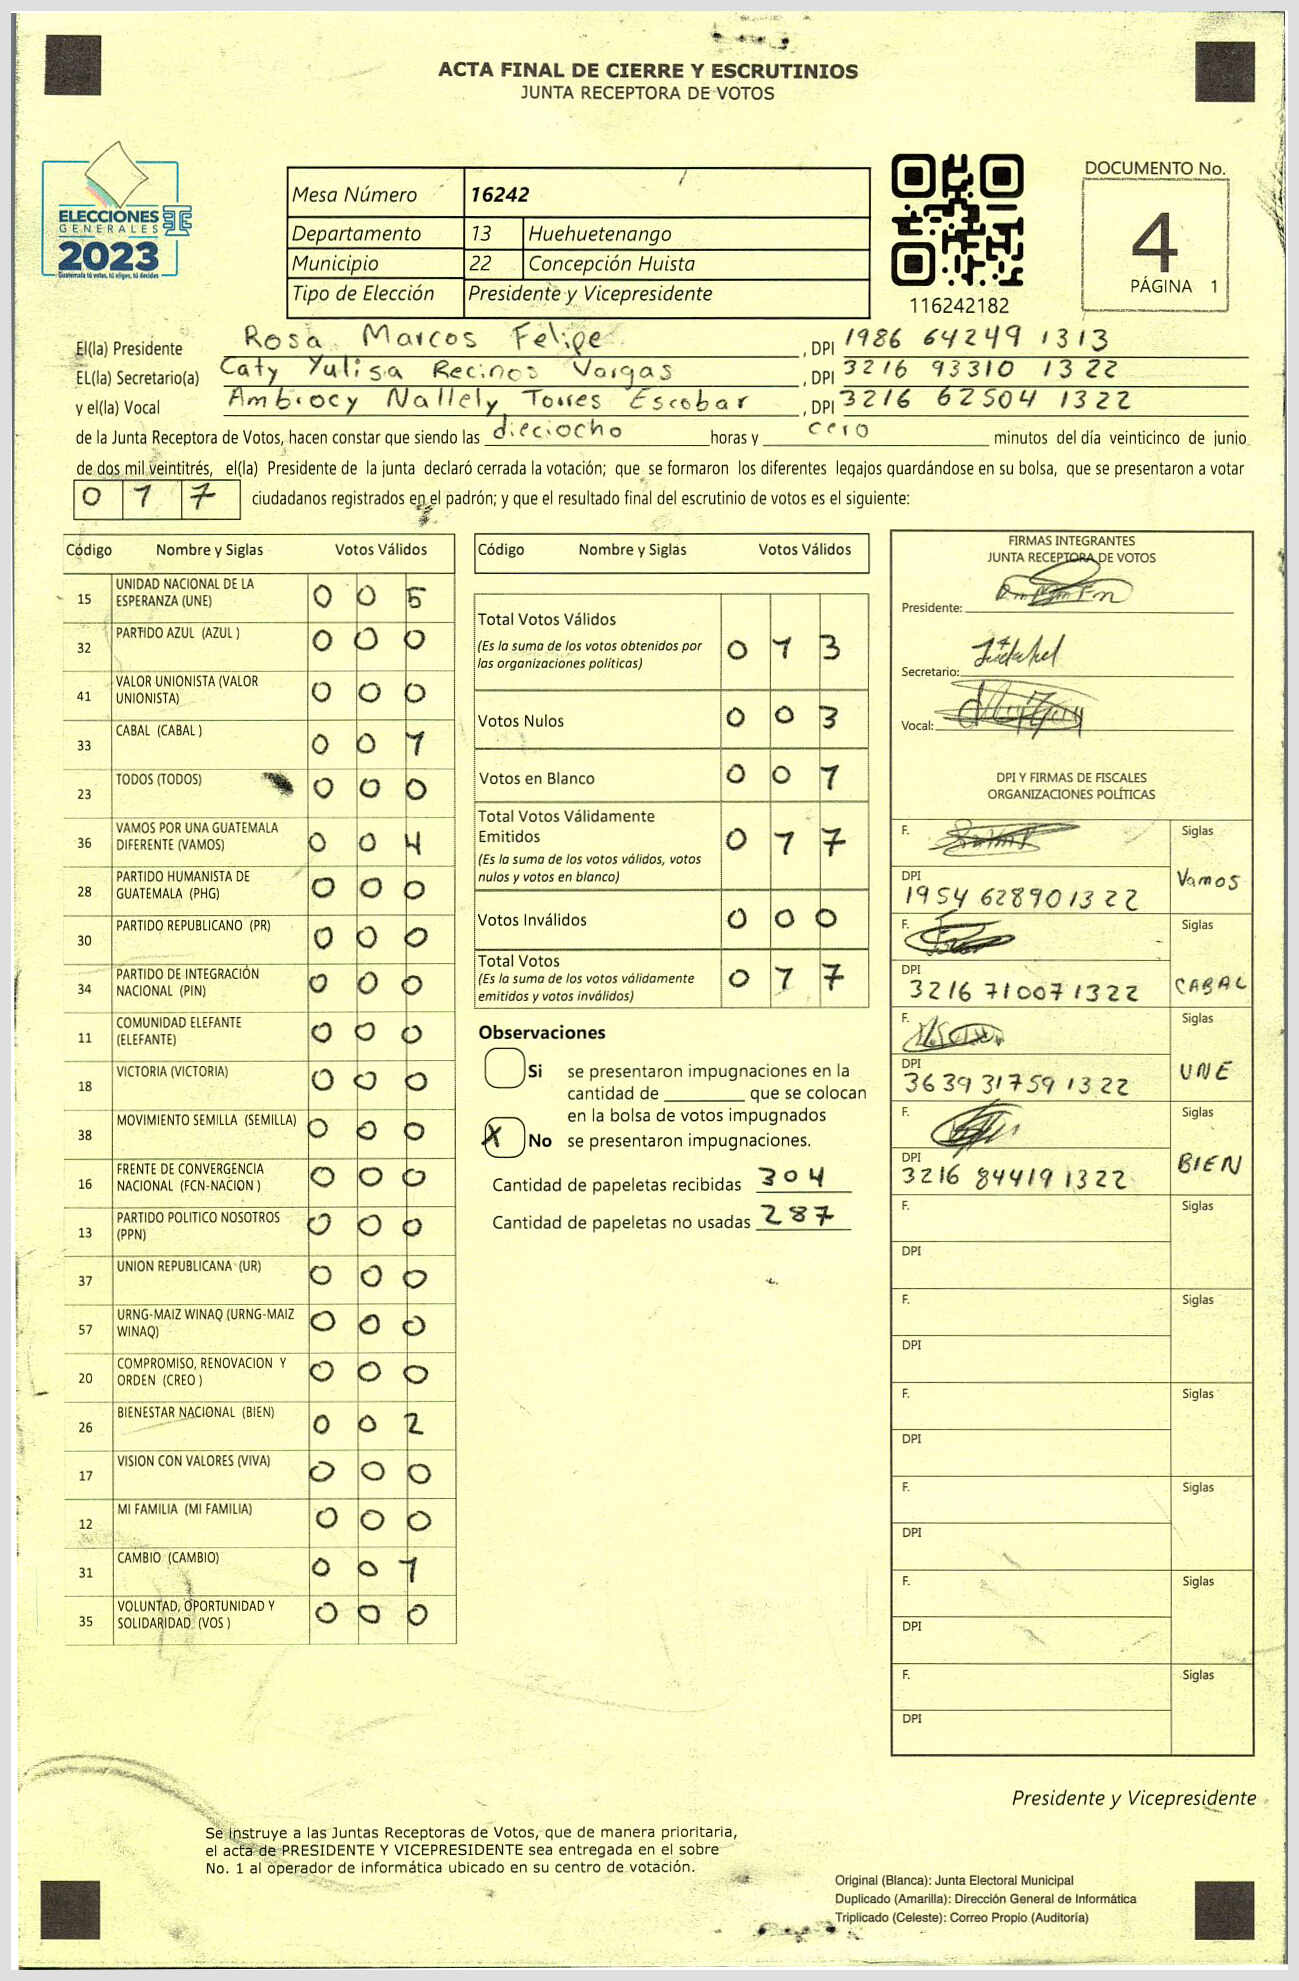 ACTA FINAL DE CIERRE Y ESCRUTINIOS
JUNTA RECEPTORA DE VOTOS
ELECCIONES
GENERALES
2023
Guatemala tú votas, tú eliges, tú decides
Mesa Número 16242
Departamento 13 Huehuetenango
Municipio 22 Concepción Huista
Tipo de Elección Presidente y Vicepresidente
116242182
DOCUMENTO No.
4
PÁGINA 1
El(la) Presidente Rosa Marcos Felipe, DPI 1986 64249 1313
EL(la) Secretario(a) Caty Yulisa Recinos Vargas, DPI 3216 93310 1322
y el(la) Vocal Ambrocy Nallely Torres Escobar, DPI 3216 62504 1322
de la Junta Receptora de Votos, hacen constar que siendo las dieciocho horas y cero minutos del día veinticinco de junio
de dos mil veintitrés, el(la) Presidente de la junta declaró cerrada la votación; que se formaron los diferentes legajos guardándose en su bolsa, que se presentaron a votar
0 1 7 ciudadanos registrados en el padrón; y que el resultado final del escrutinio de votos es el siguiente:
Código Nombre y Siglas Votos Válidos
15 UNIDAD NACIONAL DE LA
ESPERANZA (UNE) 0 0 5
32 PARTIDO AZUL (AZUL ) 0 0 0
41 VALOR UNIONISTA (VALOR
UNIONISTA) 0 0 0
33 CABAL (CABAL ) 0 0 1
23 TODOS (TODOS) 0 0 0
36 VAMOS POR UNA GUATEMALA
DIFERENTE (VAMOS) 0 0 4
28 PARTIDO HUMANISTA DE
GUATEMALA (PHG) 0 0 0
30 PARTIDO REPUBLICANO (PR) 0 0 0
34 PARTIDO DE INTEGRACIÓN
NACIONAL (PIN) 0 0 0
11 COMUNIDAD ELEFANTE
(ELEFANTE) 0 0 0
18 VICTORIA (VICTORIA) 0 0 0
38 MOVIMIENTO SEMILLA (SEMILLA) 0 0 0
16 FRENTE DE CONVERGENCIA
NACIONAL (FCN-NACION ) 0 0 0
13 PARTIDO POLITICO NOSOTROS
(PPN) 0 0 0
37 UNION REPUBLICANA (UR) 0 0 0
57 URNG-MAIZ WINAQ (URNG-MAIZ
WINAQ) 0 0 0
20 COMPROMISO, RENOVACION Y
ORDEN (CREO ) 0 0 0
26 BIENESTAR NACIONAL (BIEN) 0 0 2
17 VISION CON VALORES (VIVA) 0 0 0
12 MI FAMILIA (MI FAMILIA) 0 0 0
31 CAMBIO (CAMBIO) 0 0 1
35 VOLUNTAD, OPORTUNIDAD Y
SOLIDARIDAD (VOS ) 0 0 0
Código Nombre y Siglas Votos Válidos
Total Votos Válidos
(Es la suma de los votos obtenidos por
las organizaciones políticas) 0 1 3
Votos Nulos 0 0 3
Votos en Blanco 0 0 1
Total Votos Válidamente
Emitidos
(Es la suma de los votos válidos, votos
nulos y votos en blanco) 0 1 7
Votos Inválidos 0 0 0
Total Votos
(Es la suma de los votos válidamente
emitidos y votos inválidos) 0 1 7
Observaciones
Si se presentaron impugnaciones en la
cantidad de ________ que se colocan
en la bolsa de votos impugnados
X No se presentaron impugnaciones.
Cantidad de papeletas recibidas 304
Cantidad de papeletas no usadas 287
FIRMAS INTEGRANTES
JUNTA RECEPTORA DE VOTOS
Presidente:
Secretario:
Vocal:
DPI Y FIRMAS DE FISCALES
ORGANIZACIONES POLÍTICAS
F. Siglas
DPI Vamos
1954 62890 1322
F. Siglas
DPI CABAL
3216 71007 1322
F. Siglas
DPI UNE
3639 31759 1322
F. Siglas
DPI BIEN
3216 84419 1322
F. Siglas
DPI
F. Siglas
DPI
F. Siglas
DPI
F. Siglas
DPI
F. Siglas
DPI
F. Siglas
DPI
Presidente y Vicepresidente
Se instruye a las Juntas Receptoras de Votos, que de manera prioritaria,
el acta de PRESIDENTE Y VICEPRESIDENTE sea entregada en el sobre
No. 1 al operador de informática ubicado en su centro de votación.
Original (Blanca): Junta Electoral Municipal
Duplicado (Amarilla): Dirección General de Informática
Triplicado (Celeste): Correo Propio (Auditoría)